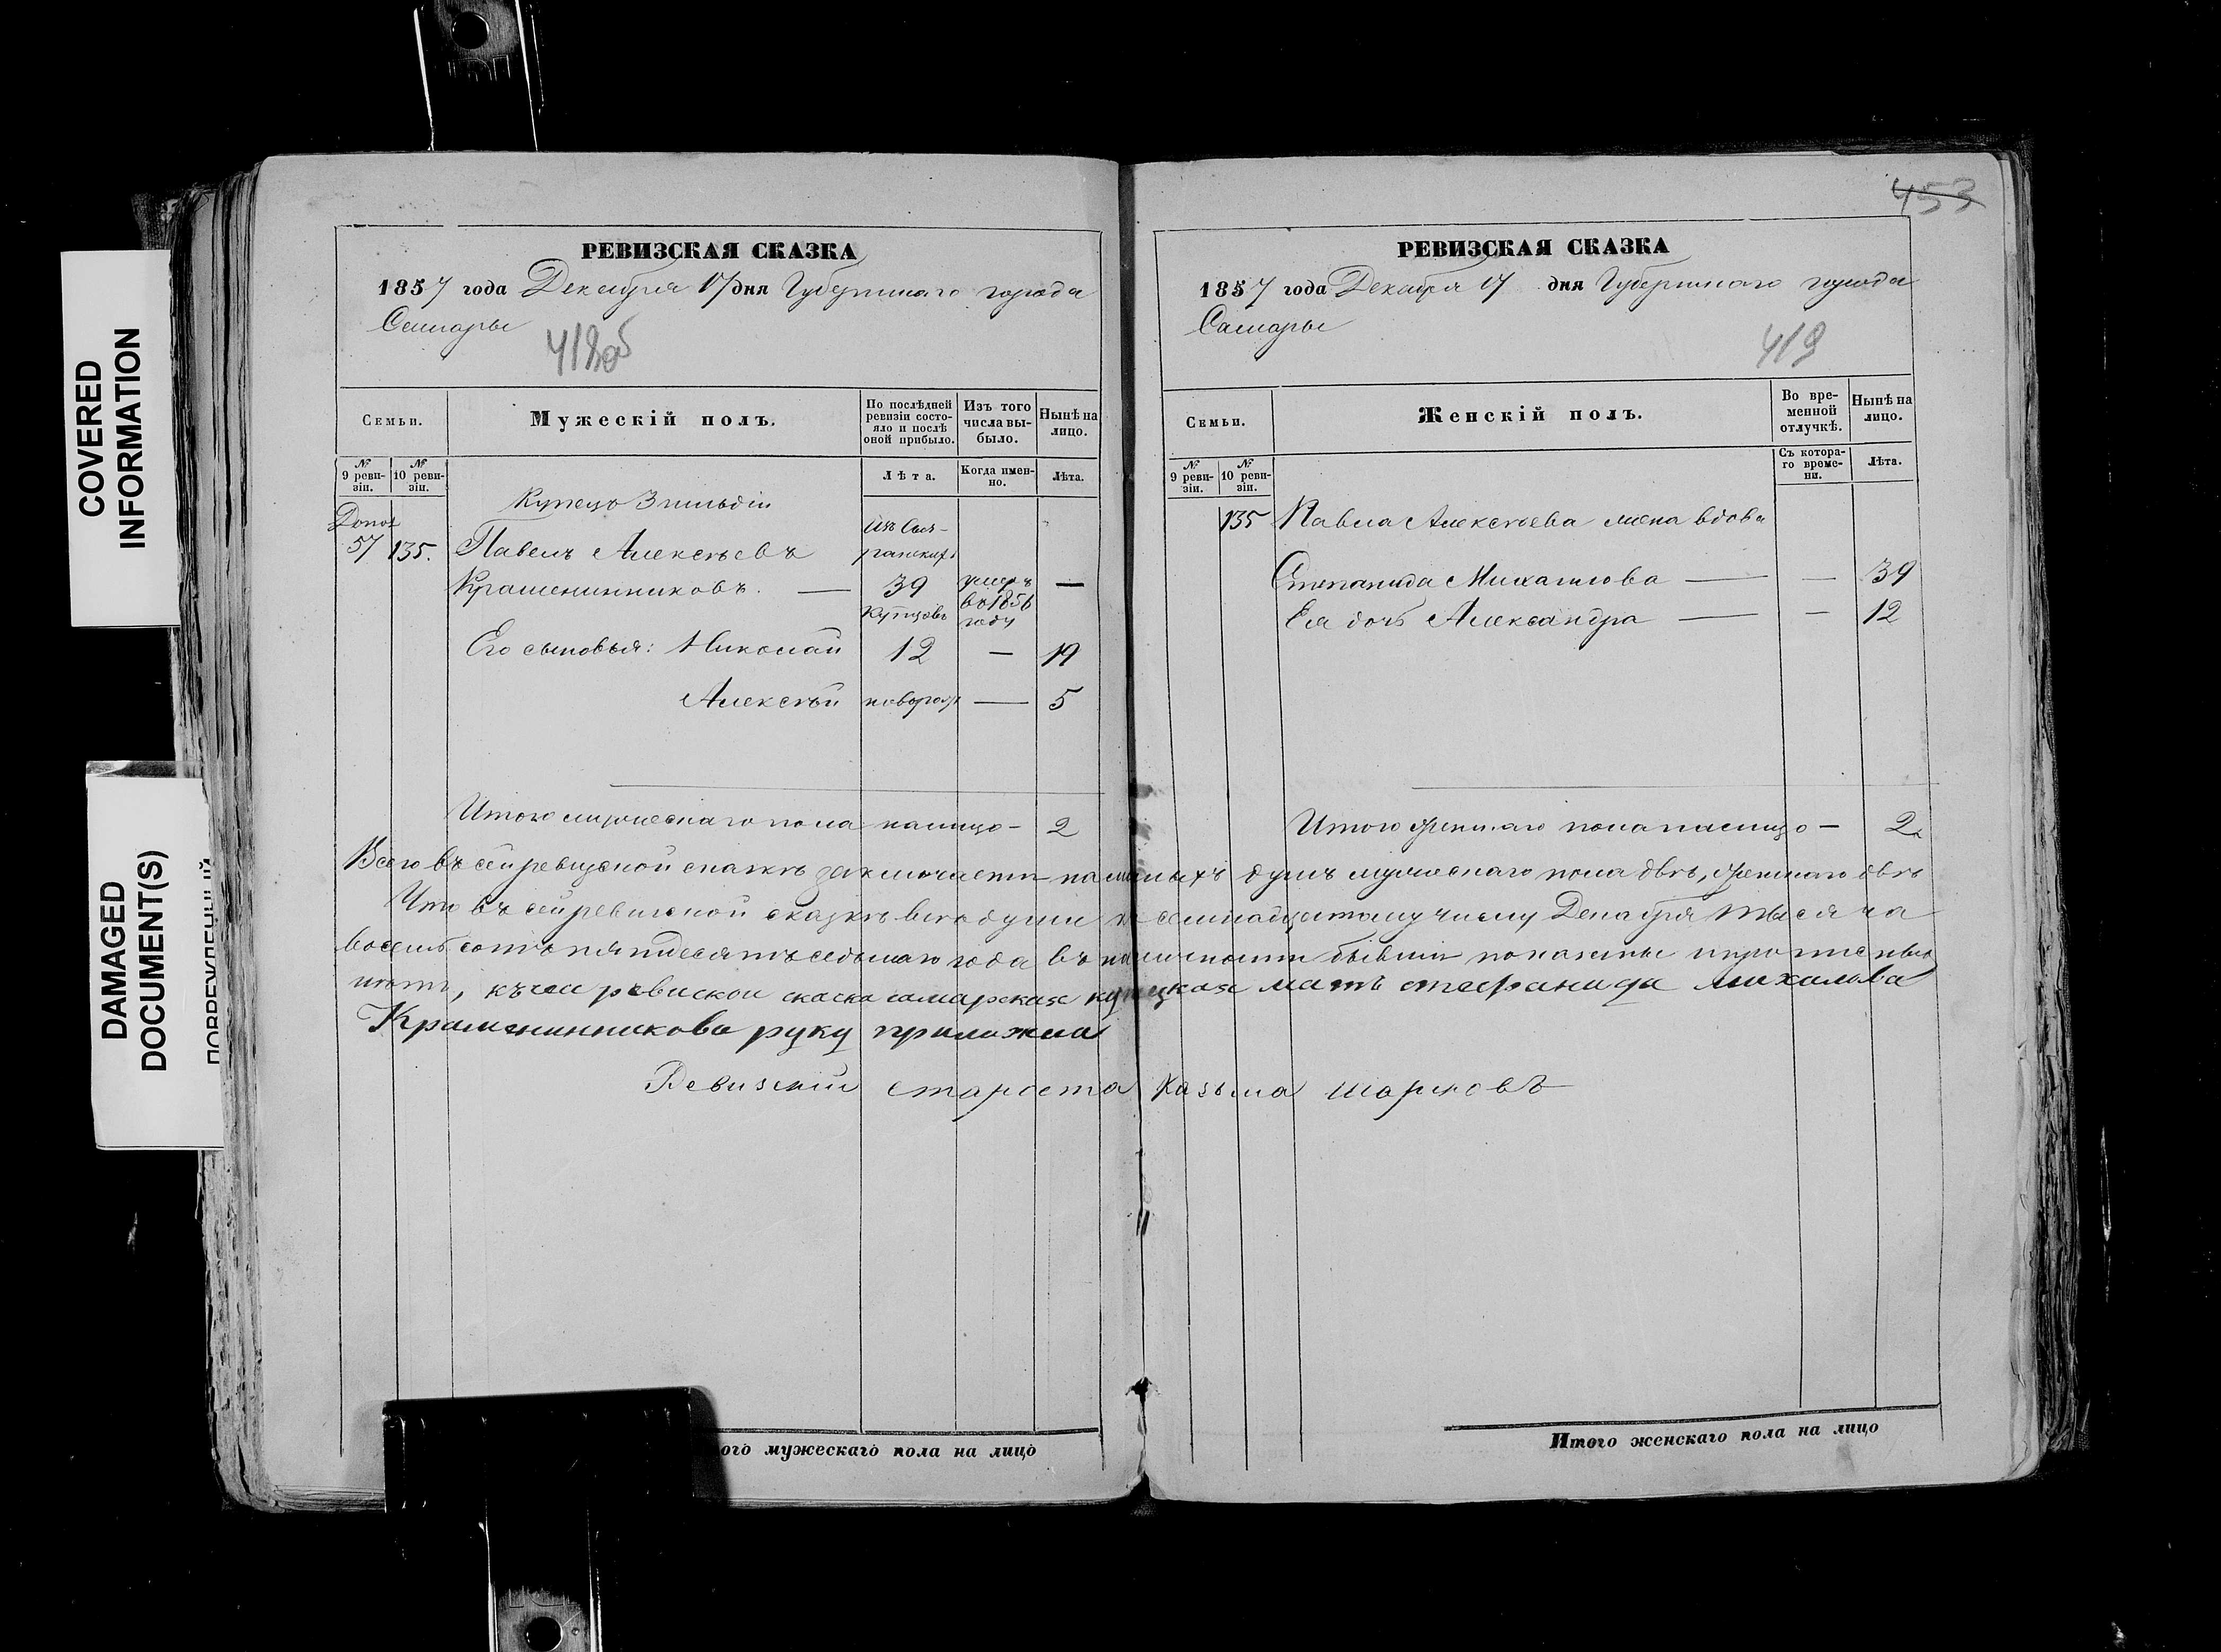 COVERED
INFORMATION
DAMAGED
DOCUMENT(S)
РЕВИЗСКАЯ СКАЗКА
1857 года Декабря 17 дня Губернскаго города
Самары
418об
Семьи.
Мужескій полъ.
По послѣдней ревизіи состояло и послѣ оной прибыло.
Изъ того числа выбыло.
Нынѣ на лицо.
№ 9 ревизіи.
№ 10 ревизіи.
Лѣта.
Когда именно.
Лѣта.
Купецъ 3 гильдіи
Допол
57 135. Павелъ Алексѣевъ
Изъ Сызранскихъ
Крашенинниковъ. — 39 умеръ въ 1856 году —
купцовъ
Его сыновья: Николай 12 — 19
Алексѣй новорож — 5
Итого мужескаго пола налицо — 2
453
РЕВИЗСКАЯ СКАЗКА
1857 года Декабря 17 дня Губернскаго города
Самары
419
Семьи.
Женскій полъ.
Во временной отлучкѣ.
Нынѣ на лицо.
№ 9 ревизіи.
№ 10 ревизіи.
Съ котораго времени.
Лѣта.
135 Павла Алексѣева жена вдова
Степанида Михайлова — — 39
Ея дочь Александра — — 12
Итого женскаго пола налицо — 2
Всего въ сей ревизской сказкѣ заключается наличныхъ душъ мужескаго пола двѣ, женскаго двѣ
Что въ сей ревизской сказкѣ всѣ души къ семнадцатому числу Декабря тысяча
восемьсотъ пятьдесятъ седьмаго года въ наличности бывшія показаны и
къ сеи ревиской скаска самарская купецкая мать стефанида михалова
Крашенинникова руку приложила
Ревизский староста Казьма Шарковъ
ого мужескаго пола на лицо
Итого женскаго пола на лицо